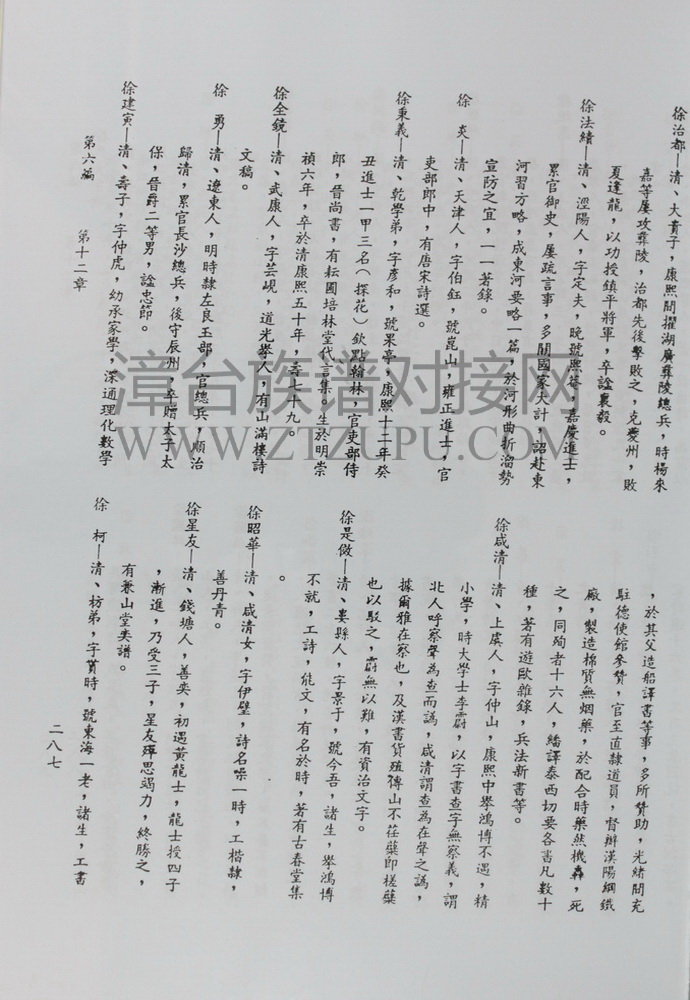 徐治都—清、大貴子，康熙間擢湖廣彝陵總兵，時楊來
嘉等屢攻彝陵，治都先後擊敗之，克夔州，敗
夏逢龍，以功授鎮平將軍，卒諡襄毅。
徐法績—清、涇陽人，字定夫，晚號熙菴，嘉慶進士，
累官御史，屢疏言事，多關國家大計，詔赴東
河習方略，成東河要略一篇，於河形曲折溜勢
宣防之宜，一一著錄。
徐　炎—清、天津人，字伯鈺，號崑山，雍正進士，官
吏部郎中，有唐宋詩選。
徐秉義—清、乾學弟，字彥和，號果亭，康熙十二年癸
丑進士一甲三名（探花）欽點翰林，官吏部侍
郎，晉尚書，有耘圃培林堂代言集。生於明崇
禎六年，卒於清康熙五十年，壽七十九。
徐全鏡—清、武康人，字芸峴，道光舉人，有山滿樓詩
文稿。
徐　勇—清、遼東人，明時隸左良玉部，官總兵，順治
歸清，累官長沙總兵，後守辰州，卒贈太子太
保，晉爵二等男，諡忠節。
徐建寅—清、壽子，字仲虎，幼承家學，深通理化數學
第六編　　第十二章
，於其父造船譯書等事，多所贊助，光緒間充
駐德使館參贊，官至直隸道員，督辦漢陽鋼鐵
廠，製造棉質無烟藥，於配合時藥然機轟，死
之，同殉者十六人，繙譯泰西切要各書凡數十
種，著有遊歐雜錄，兵法新書等。
徐咸清—清、上虞人，字仲山，康熙中舉鴻博不遇，精
小學，時大學士李霨，以字書查字無察義，謂
北人呼察聲為查而譌，咸清謂查為在聲之譌，
據爾雅在察也，及漢書貨殖傳山不茬蘖即槎蘖
也以駁之，霨無以難，有資治文字。
徐是傚—清、婁縣人，字景于，號今吾，諸生，舉鴻博
不就，工詩，能文，有名於時，著有古春堂集
。
徐昭華—清、咸清女，字伊璧，詩名噪一時，工楷隸，
善丹青。
徐星友—清、錢塘人，善奕，初遇黃龍士，龍士授四子
，漸進，乃受三子，星友殫思竭力，終勝之，
有兼山堂奕譜。
徐　柯—清、枋弟，字貫時，號東海一老，諸生，工書
二八七
漳台族谱对接网
WWW.ZTZUPU.COM